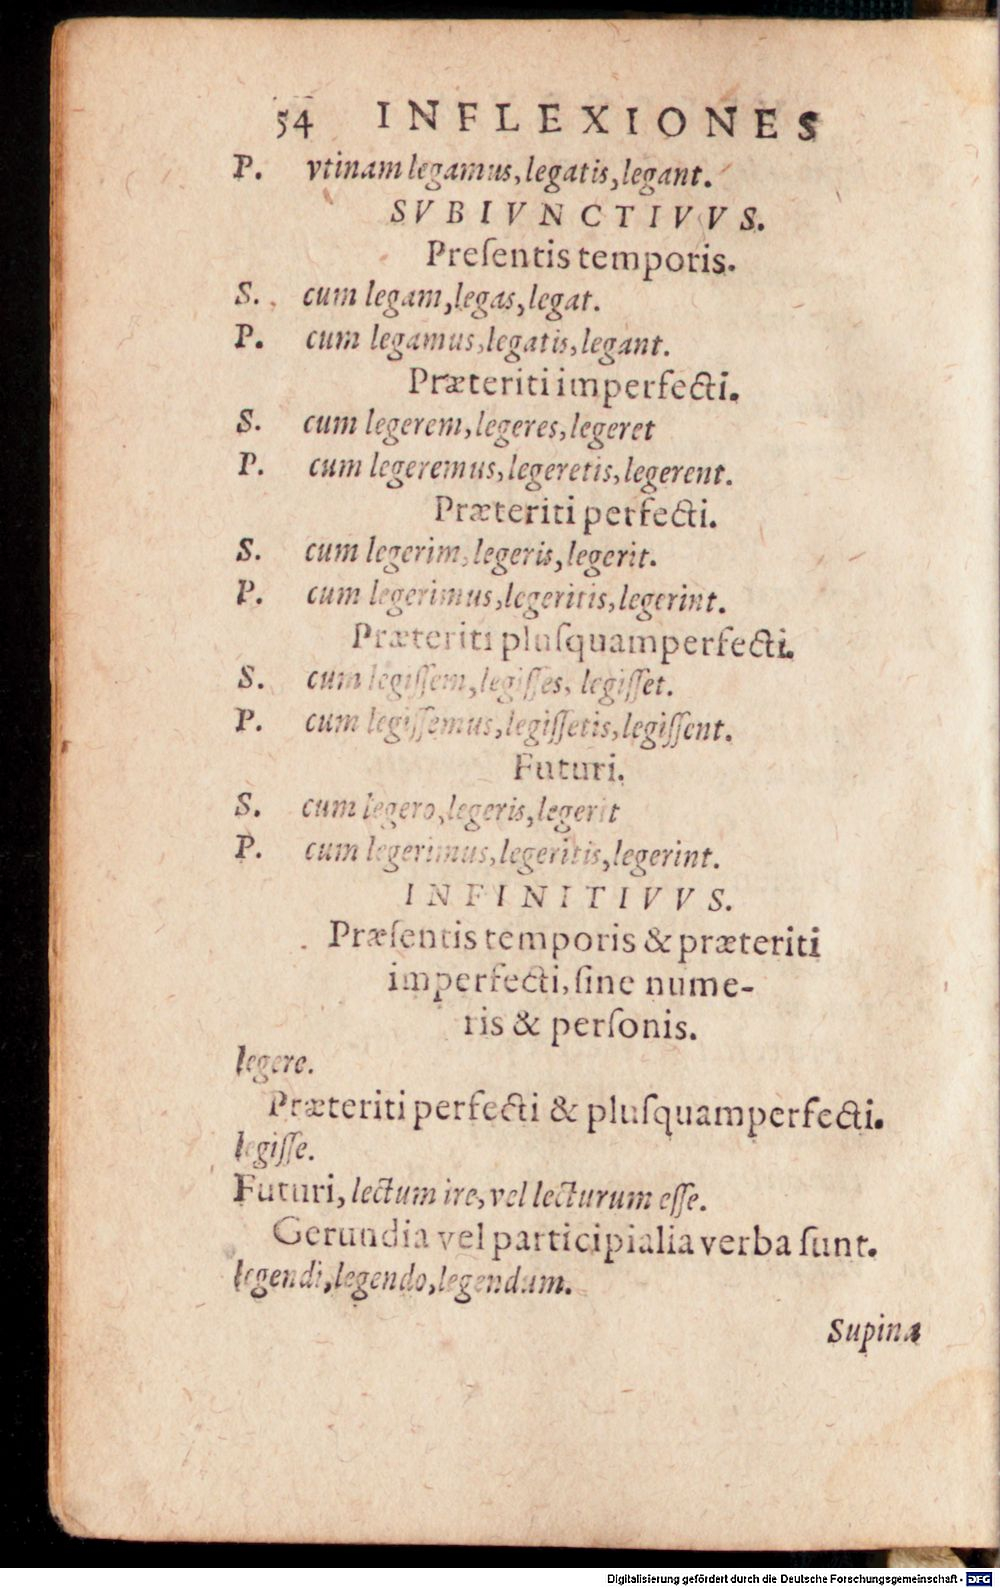 54 INFLEXIONES
P. vtinam legamus, legatis, legant.
SVBIVNCTIVVS.
Preſentis temporis.
S. cum legam, legas, legat.
P. cum legamus, legatis, legant.
Præteriti imperfecti.
S. cum legerem, legeres, legeret
P. cum legeremus, legeretis, legerent.
Præteriti perfecti.
S. cum legerim, legeris, legerit.
P. cum legerimus, legeritis, legerint.
Præteriti pluſquamperfecti.
S. cum legiſſem, legiſſes, legiſſet.
P. cum legiſſemus, legiſſetis, legiſſent.
Futuri.
S. cum legero, legeris, legerit
P. cum legerimus, legeritis, legerint.
INFINITIVVS.
Præſentis temporis & præteriti
imperfecti, ſine nume-
ris & perſonis.
legere.
Præteriti perfecti & pluſquamperfecti.
legiſſe.
Futuri, lectum ire, vel lecturum eſſe.
Gerundia vel participialia verba ſunt.
legendi, legendo, legendum.
Supina
Digitalisierung gefördert durch die Deutsche Forschungsgemeinschaft - DFG